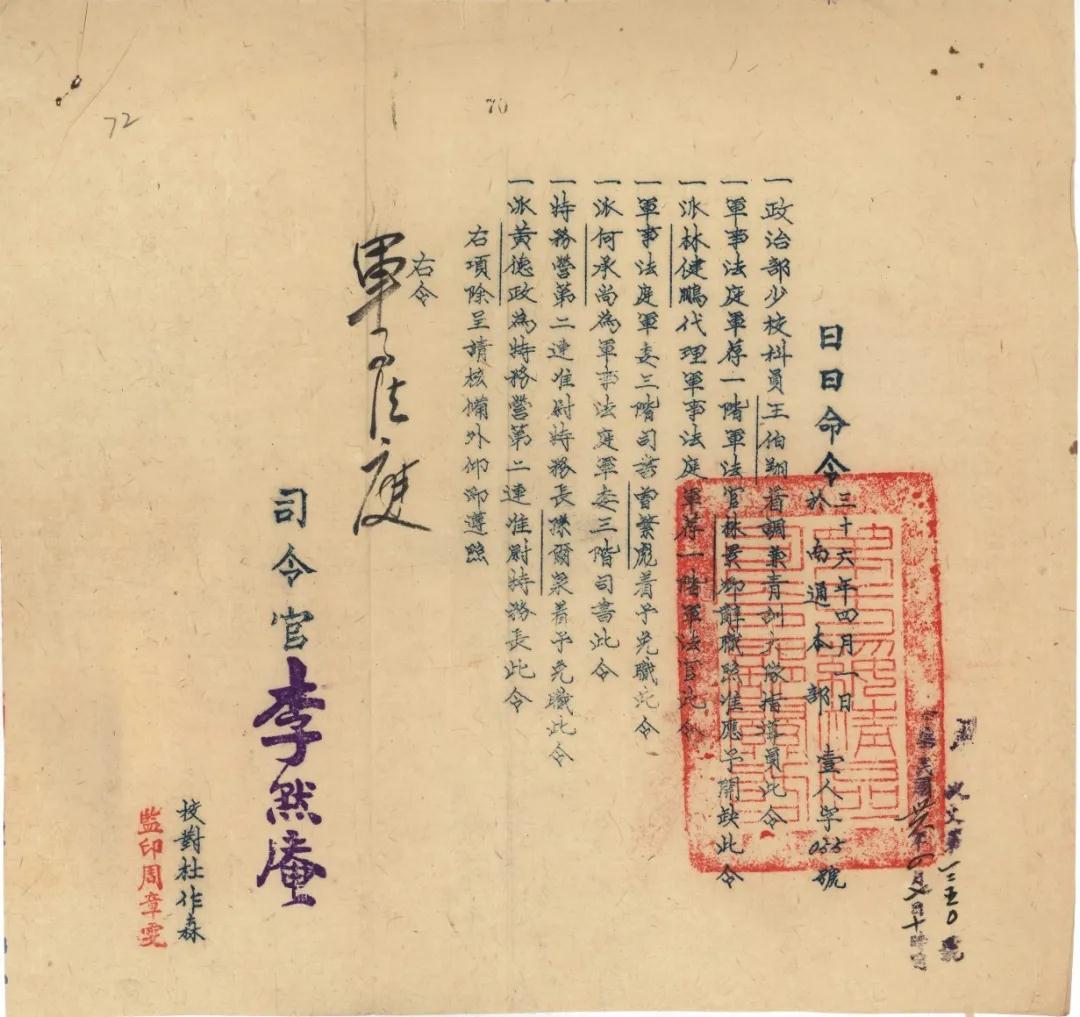 72
70
日日命令
三十六年四月一日
於南通本部
壹人字055號
一政治部少校科員王伯翔着調兼青訓大隊指導員此令
一軍事法庭軍荐一階軍法官林景卿辭職照准應予開缺此令
一派林健鵬代理軍事法庭軍荐一階軍法官此令
一軍事法庭軍委三階司書曾繁彪着予免職此令
一派何承尚為軍事法庭軍委三階司書此令
一特務營第二連准尉特務長陳爾泉着予免職此令
一派黃德政為特務營第二連准尉特務長此令
右項除呈請核備外仰即遵照
右令
軍事法庭
司令官李然庵
校對杜作森
監印周章雯
收文第一三五〇號